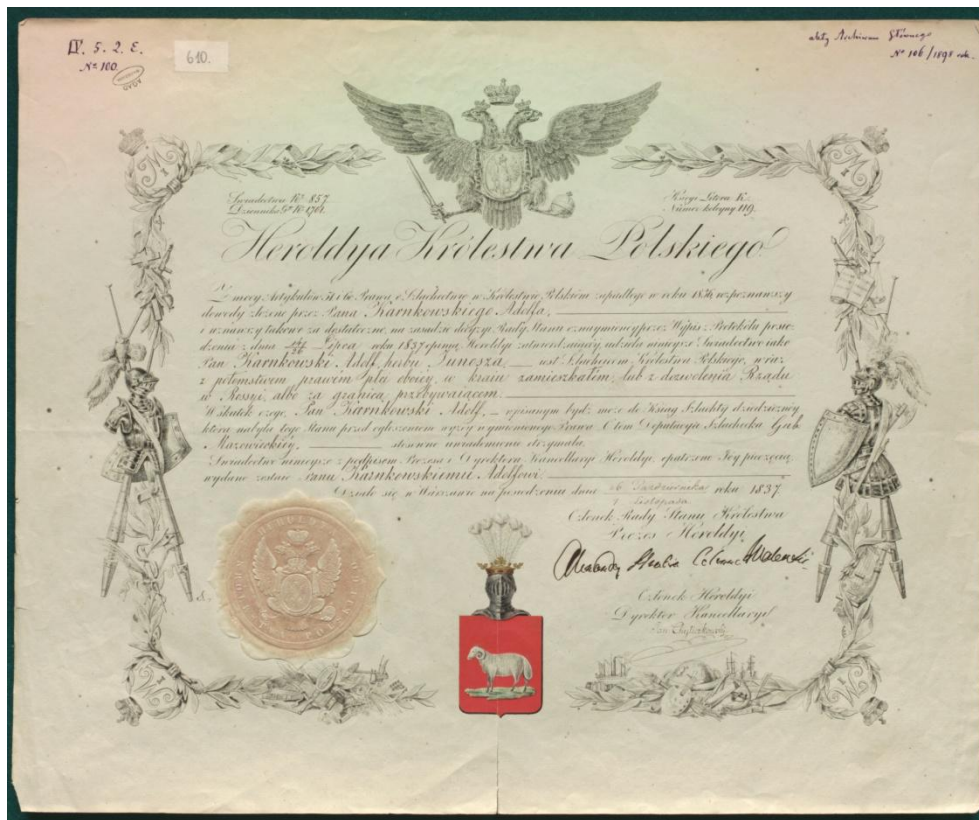 IV. 5. 2. E.
№ 100.
AGAD
610.
akty Archiwum Głównego
№ 106/1898 rok.
Świadectwo № 857.
Księga Litera K.
Numer kolejny 119.
Heroldya Królestwa Polskiego
Z mocy Artykułów 51 i 60 Prawa o Szlachectwie w Królestwie Polskiem zapadłego w roku 1836, rozpoznawszy
dowody złożone przez Pana Karnkowskiego Adolfa,
i uznawszy takowe za dostateczne, na zasadzie decyzyi Rady Stanu oznaymioney przez Wypis z Protokółu posie-
dzenia z dnia Lipca roku 1837 opinią Heroldyi zatwierdzaiącey, udziela ninieysze Świadectwo iako
Pan Karnkowski Adolf herbu Junosza, iest Szlachcicem Królestwa Polskiego, wraz
z potomstwem prawem płci oboiey, w kraiu zamieszkałem, lub z dozwolenia Rządu
w Rossyi, albo za granicą przebywaiącem.
W skutek czego, Pan Karnkowski Adolf, zapisanym bydź może do Ksiąg Szlachty dziedziczney
która nabyła tego Stanu przed ogłoszeniem wyżey wymienionego Prawa. O tem Deputacya Szlachecka Gub.
Mazowieckiey, stosowne uwiadomienie otrzymała.
Świadectwo ninieysze z podpisem Prezesa i Dyrektora Kancellaryi Heroldyi, opatrzone Jey pieczęcią,
wydane zostaie Panu Karnkowskiemu Adolfowi.
Działo się w Warszawie na posiedzeniu dnia Października roku 1837.
Listopada
Członek Rady Stanu Królestwa
Prezes Heroldyi,
Alexander Hrabia Colonna Walewski
Członek Heroldyi
Dyrektor Kancellaryi